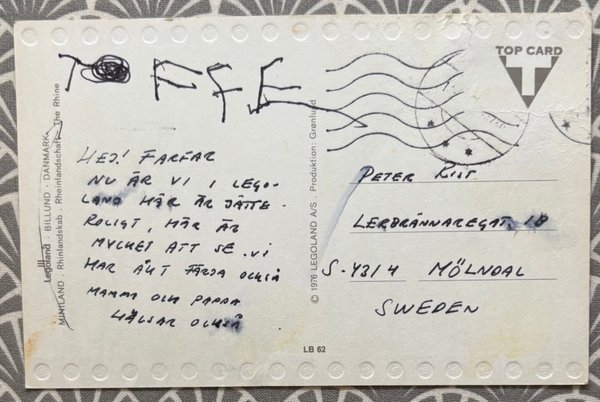 TOFFE
HEJ! FARFAR
NU ÄR VI I LEGO-
LAND HÄR ÄR JÄTTE-
ROLIGT, HÄR ÄR
MYCKET ATT SE. VI
HAR ÅKT FÄRJA OCKSÅ
MAMMA OCH PAPPA
HÄLSAR OCKSÅ
Legoland · BILLUND · DANMARK
MINILAND · Rhinlandskab · Rheinlandschaft · The Rhine
© 1976 LEGOLAND A/S · Produktion: Grønlund
LB 62
TOP CARD
T
PETER
LERBRÄNNAREGAT. 1B
S-4314 MÖLNDAL
SWEDEN